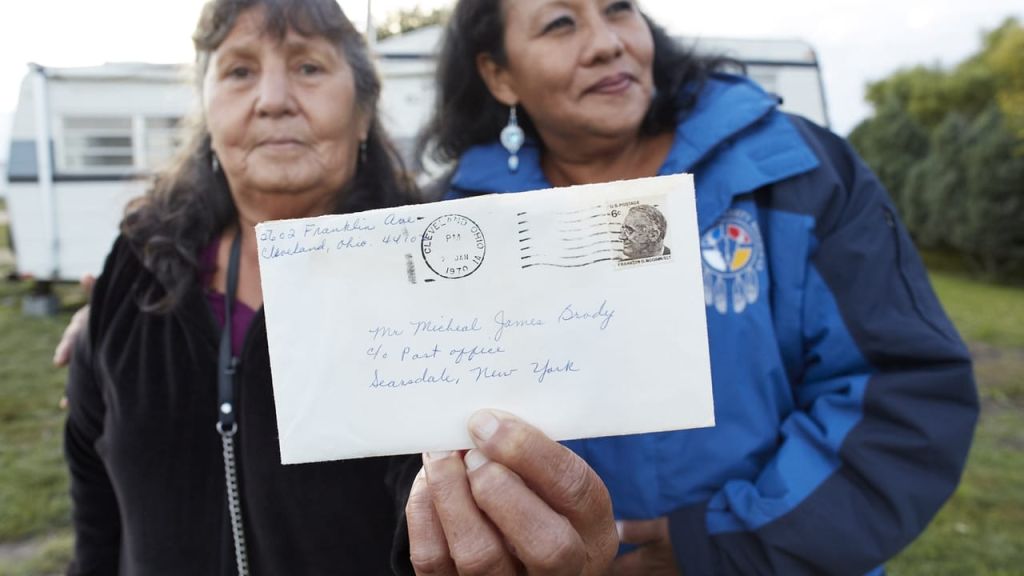 2602 Franklin Ave.
Cleveland, Ohio.
CLEVELAND, OHIO
PM
JAN
1970
U.S. POSTAGE
6c
FRANKLIN D. ROOSEVELT
Mr Micheal James Brody
c/o Post office
Scarsdale, New York